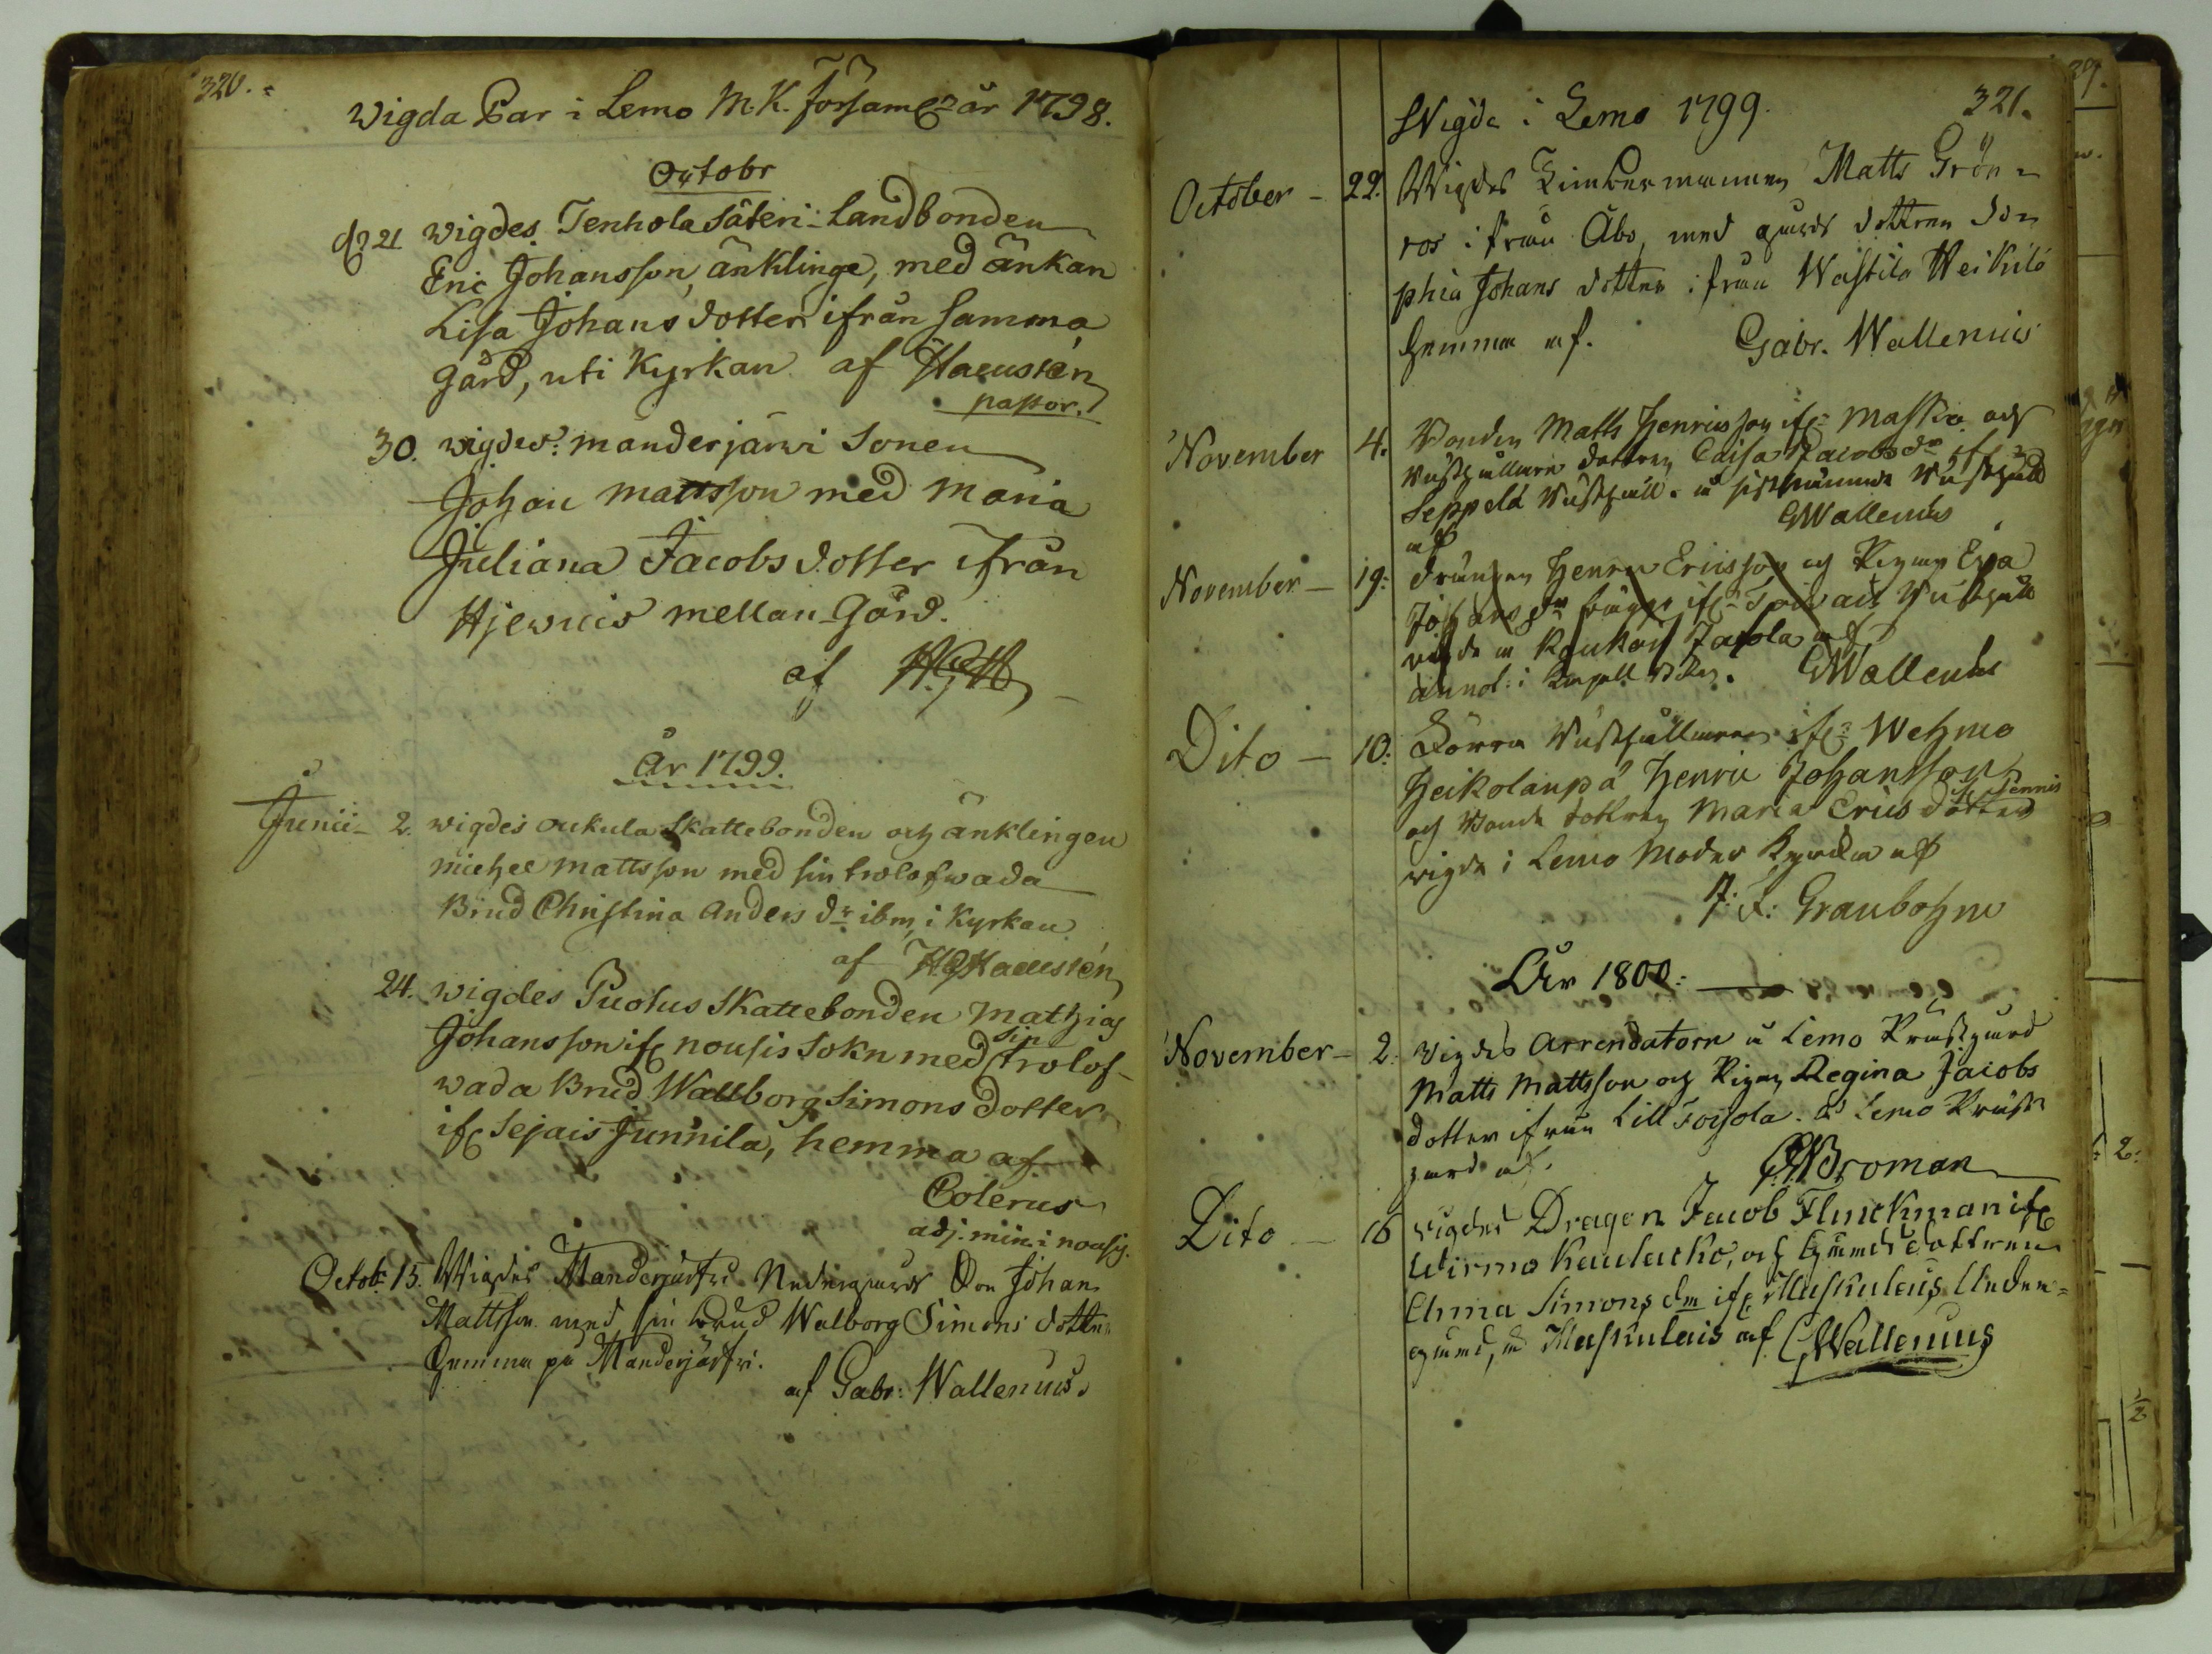 320.
Wigda Par i Lemo M.K. Församl: år 1798.
Octobr
d. 21 wigdes Tenhola Säteri-Landbonden
Eric Johansson, änklinge, med änkan
Lisa Johans dotter ifrån samma
gård, uti Kyrkan af Haeustén
pastor.
30. wigdes manderjärvi Sonen
Johan Mattsson med Maria
Juliana Jacobs dotter ifrån
Hjerwis mellan Gård.
af
År 1799.
Junii 2. wigdes oukula Skattebonden och änklingen
Michel Mattsson med sin trolofwada
Brud Christina Anders dr ibm, i Kyrkan
af HGHaeustén
24. wigdes Puotus Skattebonden Mathias
Johansson ifr nousis Sokn med sin trolof-
wada Brud Wallborg Simons dotter
ifr Sejais Junnila, hemma af
Colerus
adj. min: i nousis.
Octob: 15. Wigdes Manderjärfvi Nedergårds Son Johan
Mattsson med sin brud Walborg Simons dotter
hemma på Manderjärfvi.
af Gabr: Wallenius.
Wigde i Lemo 1799. 321.
October - 22. Wigdes Timbermannen Matts Grön-
ros ifrån Åbo, med gårds dottren So-
phia Johans dotter ifrån Wastila Weikilä
hemma af. Gabr. Wallenius
November 4. Bonden Matts Henricsson ifr Masko och
Rusthållare dottren Caisa Jacobs dr ifr
Seppelä Rusthåll. å sistnämnde Rusthåll
af GWallenius
November - 19. Drängen Henric Ericsson och Pigan Eva
Johans dr bägge ifr Rusthåll
vigde Kaukois Jakola af
annot: i GWallenius
Dito - 10: Rusthållaren ifr Wehmo
Heikolanpä Henric Johansson
och Bonde dottren Maria Erics dotter
vigde i Lemo Moder Kyrka af
J: Granbohm
År 1800:
November - 2. vigdes Arrendatorn å Lemo Prästgård
Matts Mattsson och Pigan Regina Jacobs
dotter ifrån Lill Toijola. å Lemo Präst-
gård af. Broman
Dito - 16 vigdes Dragon Jacob Flinckman ifr
Wirmo Kaulacko, och gårds dottren
Anna Simons dr ifr Maskulais Neder-
gård, å Maskulais af GWallenius